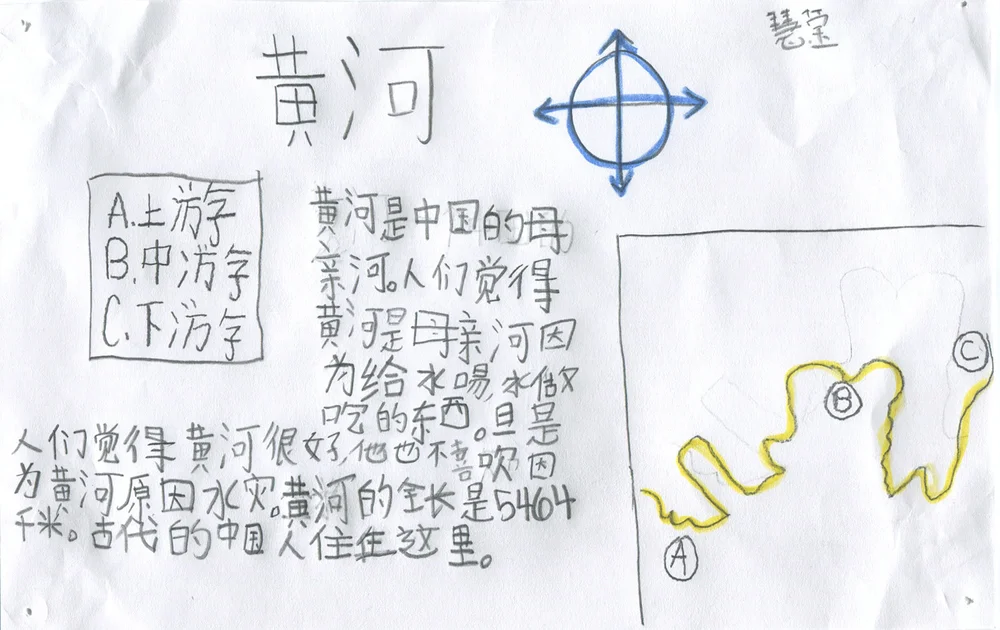 慧莹
黄河
A.上游字
B.中游字
C.下游字
黄河是中国的母
亲河。人们觉得
黄河是母亲河因
为给水喝,水做
吃的东西。旦是
人们觉得黄河很好,他也不喜吹因
为黄河原因水灾。黄河的全长是5464
千米。古代的中国人住在这里。
C
B
A